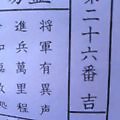 第二十六番 吉
將軍有異声
進兵萬里程